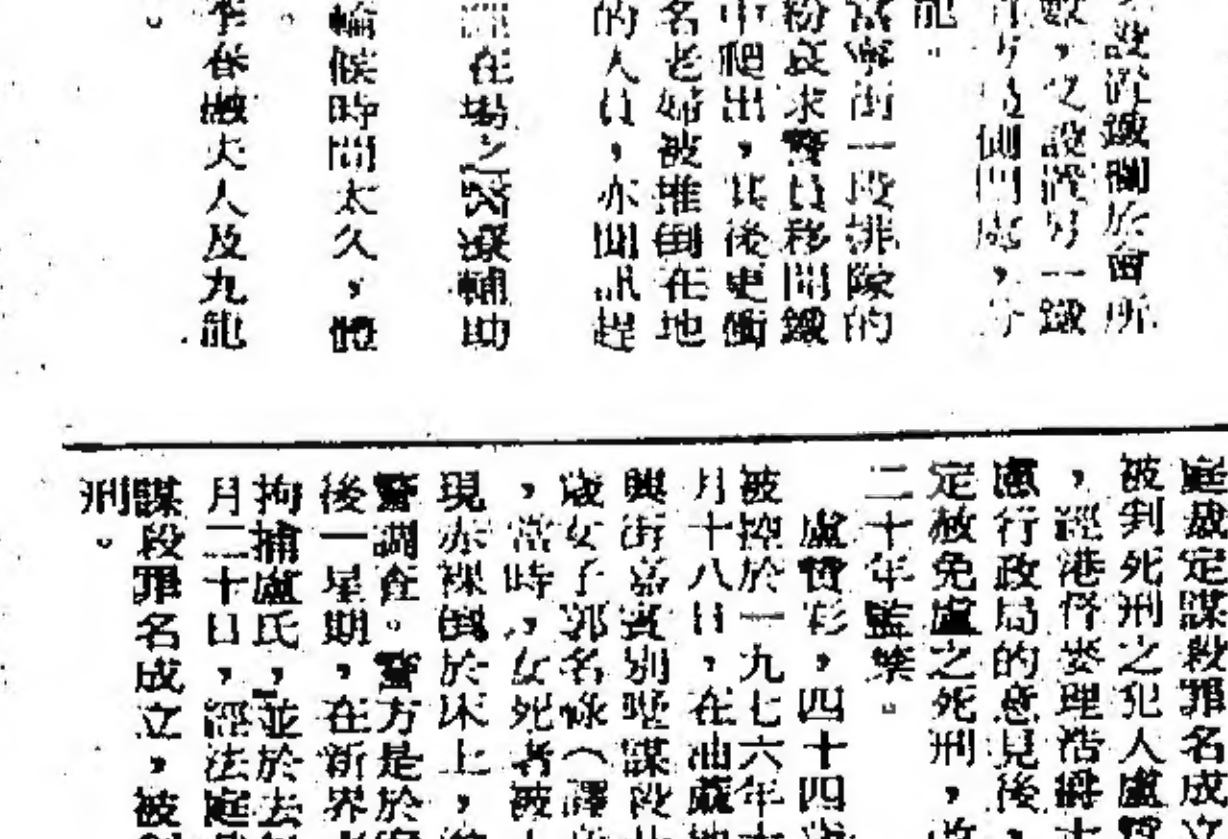 設置鐵欄於會所
數，又設置另一鐵
側門處，
龍。
寧街一段排除的
紛哀求警員移開鐵
中爬出，其後更衝
名老婦被推倒在地
的人員，亦聞訊趕
在場之醫療輔助
輪候時間太久，體
。
李春融夫人及九龍
。
庭裁定謀殺罪名成立
被判死刑之犯人盧
，經港督麥理浩爵士
慮行政局的意見後，
定赦免盧之死刑，改
二十年監禁。
盧贊彭，四十四歲
被控於一九七六年
月十八日，在油蔴地
興街嘉賓別墅謀殺
歲女子郭名條（譯音
，當時，女死者被
現赤裸倒於床上，
警調查。警方是於
後一星期，在新界
拘捕盧氏，並於去年
月二十日，經法庭
謀殺罪名成立，被判
刑。